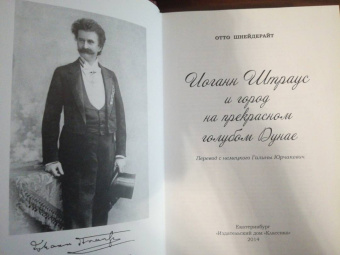 ОТТО ШНЕЙДЕРАЙТ
Иоганн Штраус
и город
на прекрасном
голубом Дунае
Перевод с немецкого Галины Юрчакевич
Екатеринбург
«Издательский дом «Классика»
2014